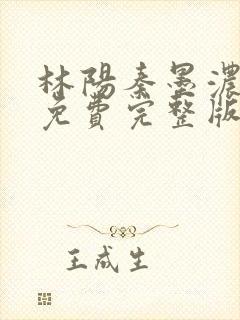 林陽秦墨濃
免費完整版
王成生